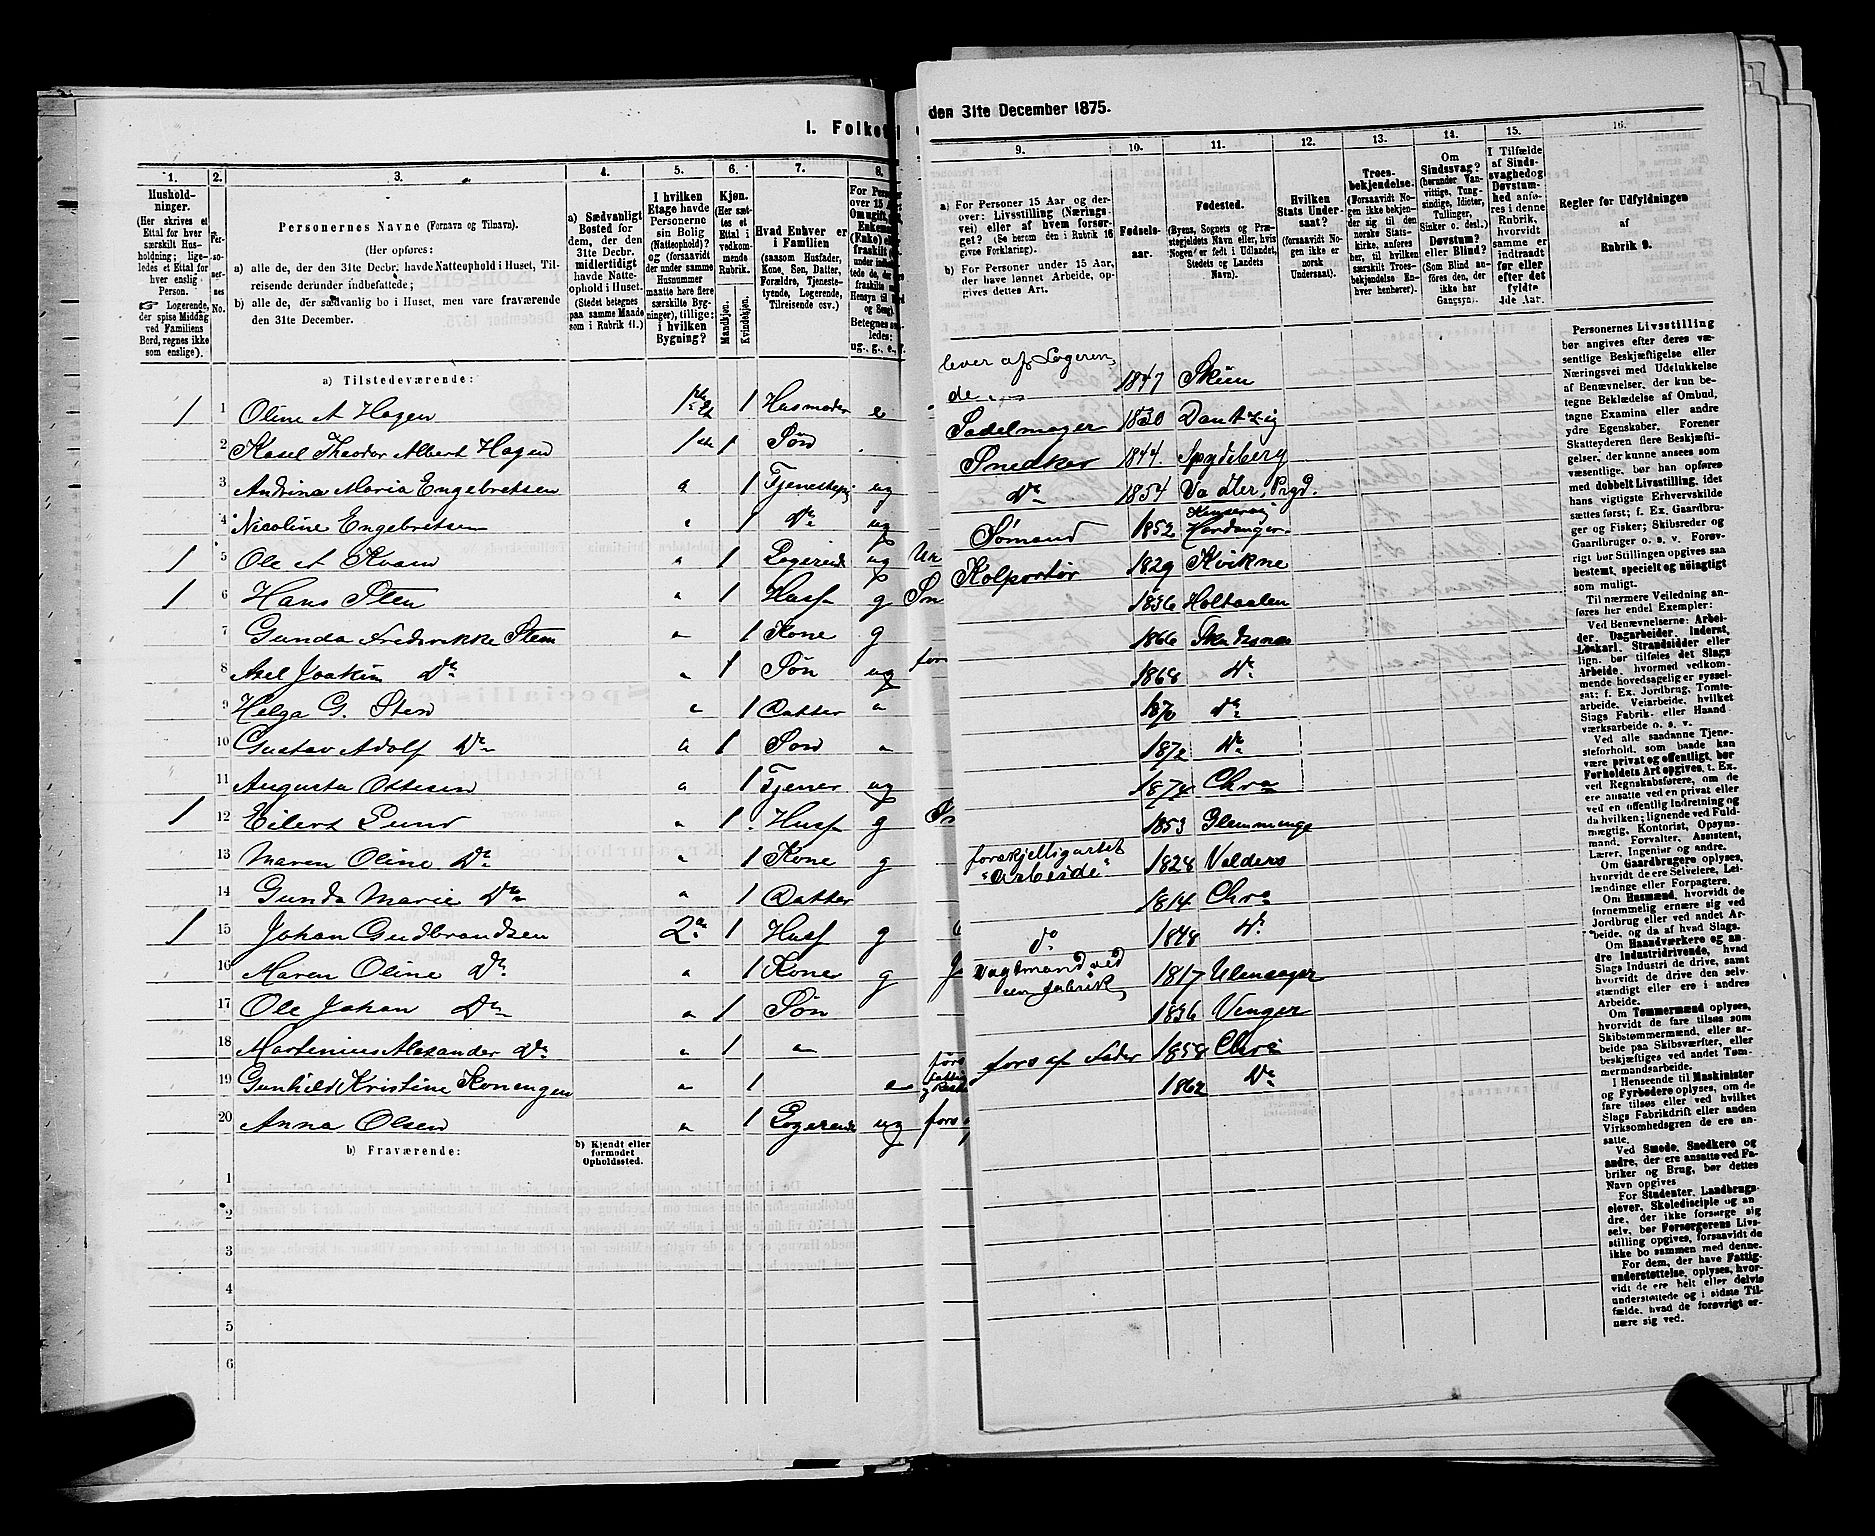 I. Folket
1.
2.
3.
4.
5.
6.
7.
8.
Hushold-
ninger.
(Her skrives et
Ettal for hver
særskilt Hus-
holdning; lige-
ledes et Ettal for
hver enslig
Person.
Logerende,
der spise Middag
ved Familiens
Bord, regnes ikke
som enslige).
Per-
so-
ner-
nes
No.
Personernes Navne (Fornavn og Tilnavn).
(Her opføres:
a) alle de, der den 31te Decbr. havde Natteophold i Huset, Til-
reisende derunder indbefattede;
b) alle de, der sædvanlig bo i Huset, men vare fraværende
den 31te December.
a) Sædvanligt
Bosted for
dem, der den
31te Decbr.
midlertidigt
havde Natte-
ophold i Huset.
(Stedet betegnes
paa samme Maade
som i Rubrik 11.)
I hvilken
Etage havde
Personerne
sin Bolig
(Natteophold)?
og (forsaavidt
der under samme
Husnummer
maatte høre flere
særskilte Byg-
ninger), tillige:
i hvilken
Bygning?
Kjøn.
(Her sæt-
tes et
Ettal i
vedkom-
mende
Rubrik.
Mandkjøn.
Kvindekjøn.
Hvad Enhver er
i Familien
(saasom Husfader,
Kone, Søn, Datter,
Forældre, Tjeneste-
tyende, Logerende,
Tilreisende osv.)
For Personer
over 15 A
Enkema
(Enke) ell
fraskilt
Betegnes saa-
ledes:
ug., g., e., f.
a) Tilstedeværende:
1 1 Oline A Hagen 1 Husmoder e
2 Karl Theodor Albert Hagen 1 Søn
3 Andrina Maria Engebretsen 1 Tjenestepig ug
4 Nicoline Engebretsen 1 Do ug
1 5 Ole A Kvam 1 Logerende ug Ur
1 6 Hans Sten 1 Husf g Sn
7 Gunda Fredrikke Sten 1 Kone g
8 Axel Joakim Do 1 Søn ug for
9 Helga G. Sten 1 Datter
10 Gustav Adolf Do 1 Søn
11 Augusta Ottesen 1 Tjener ug
1 12 Eilert Lund 1 Husf g
13 Maren Oline Do 1 Kone g
14 Gunda Marie Do 1 Datter
1 15 Johan Gudbrandsen 2 1 Husf g
16 Maren Oline Do 1 Kone g
17 Ole Johan Do 1 Søn
18 Martinius Alexander Do 1
19 Gunhild Kristine Korengen 1 e
20 Anna Olsen 1 Logerende ug fors
b) Fraværende:
b) Kjendt eller
formodet
Opholdssted.
1
2
3
4
5
6
den 31te December 1875.
9.
10.
11.
12.
13.
14.
15.
16.
a) For Personer 15 Aar og der-
over: Livsstilling (Nærings-
vei) eller af hvem forsør-
get? (Se herom den i Rubrik 16
givne Forklaring).
b) For Personer under 15 Aar,
der have lønnet Arbeide, op-
gives dettes Art.
Fødsels-
aar.
Fødested.
(Byens, Sognets og Præ-
stegjeldets Navn eller, hvis
Nogen er født i Udlandet,
Stedets og Landets
Navn).
Hvilken
Stats Under-
saat?
(forsaavidt No-
gen ikke er
norsk
Undersaat).
Troes-
bekjendelse.
(Forsaavidt No-
gen ikke bekjen-
der sig til den
norske Stats-
kirke, anføres
her, til hvilken
særskilt Troes-
bekjendelse En-
hver henhører).
Om
Sindssvag?
(herunder Van-
vittige, Tung-
sindige, Idioter,
Tullinger,
Sinker o. desl.)
Døvstum?
eller Blind?
(Som Blind an-
føres den, der
ikke har
Gangsyn).
I Tilfælde
af Sinds-
svaghed og
Døvstum-
hed anfø-
res i denne
Rubrik,
hvorvidt
samme er
indtraadt
før eller
efter det
fyldte
4de Aar.
Regler for Udfyldningen
af
Rubrik 9.
lever af Logeren-
de 1847 Skien
Sadelmager 1830 Dantzig
Snedker 1844 Spydeberg
Do 1854
Sømand 1852 Hardanger
Kolportør 1829 Kvikne
1836 Holtaalen
1866 Skudesnes
1868 Do
1870 Do
1872 Do
1874 Chra
1853 Glemminge
forskjelligartet
"Arbeide" 1828 Valders
1814 Chra
do 1848 Do
Vagtmand ved
en fabrik 1817 Ulensager
1836 Vinger
fors af Fader 1858 Chra
1862 Do
Personernes Livsstilling
bør angives efter deres væ-
sentlige Beskjæftigelse eller
Næringsvei med Udelukkelse
af Benævnelser, der kun be-
tegne Beklædelse af Ombud,
tagne Examina eller andre
ydre Egenskaber. Forener
Skatteyderen flere Beskjæfti-
gelser, der kunne ansees som
væsentlige, bør han opføres
med dobbelt Livsstilling, idet
hans vigtigste Erhvervskilde
sættes først; f. Ex. Gaardbru-
ger og Fisker; Skibsreder og
Gaardbruger o. s. v. Forøv-
rigt bør Stillingen opgives saa
bestemt, specielt og nøiagtigt
som muligt.
Til nærmere Veiledning an-
føres her endel Exempler:
Ved Benævnelserne: Arbei-
der, Dagarbeider, Inderst,
Løskarl, Strandsidder eller
lign. bør tilføies det Slags
Arbeide, hvormed vedkom-
mende hovedsagelig er syssel-
sat; f. Ex. Jordbrug, Tomte-
arbeide, Veiarbeide, hvilket
Slags Fabrik- eller Haand-
værksarbeide o. s. v.
Ved alle saadanne Tjene-
steforhold, som baade kan
være privat og offentligt, bør
Forholdets Art opgives, t. Ex.
ved Regnskabsførere, om de
ere ansatte ved en privat eller
ved en offentlig Indretning og
da hvilken; lignende ved Fuld-
mægtig, Kontorist, Opsyns-
mand, Forvalter, Assistent,
Lærer, Ingeniør og andre.
Om Gaardbrugere oplyses,
hvorvidt de ere Selveiere, Lei-
lændinge eller Forpagtere.
Om Husmænd, hvorvidt de
fornemmelig ernære sig ved
Jordbrug eller ved andet Ar-
beide, og da af hvad Slags.
Om Haandværkere og an-
dre Industridrivende, hvad
Slags Industri de drive, samt
hvorvidt de drive den selv-
stændigt eller ere i andres
Arbeide.
Om Tømmermænd oplyses,
hvorvidt de fare tilsøs som
Skibstømmermænd, eller ar-
beide paa Skibsværfter, eller
beskjæftiges ved andet Tøm-
mermandsarbeide.
I Henseende til Maskinister
og Fyrbødere oplyses, om de
fare tilsøs eller ved hvilket
Slags Fabrikdrift eller anden
Virksomhedsgren de ere an-
satte.
Ved Smede, Snedkere og
andre, der ere ansatte ved Fa-
briker og Brug, bør dettes
Navn opgives
For Studenter, Landbrugs-
elever, Skoledisciple og an-
dre, der ikke forsørge sig
selv, bør Forsørgerens Livs-
stilling opgives, forsaavidt de
ikke bo sammen med denne.
For dem, der have Fattig-
understøttelse, oplyses, hvor-
vidt de ere helt eller delvis
understøttede og i sidste Til-
fælde, hvad de forøvrigt er-
nære sig ved.